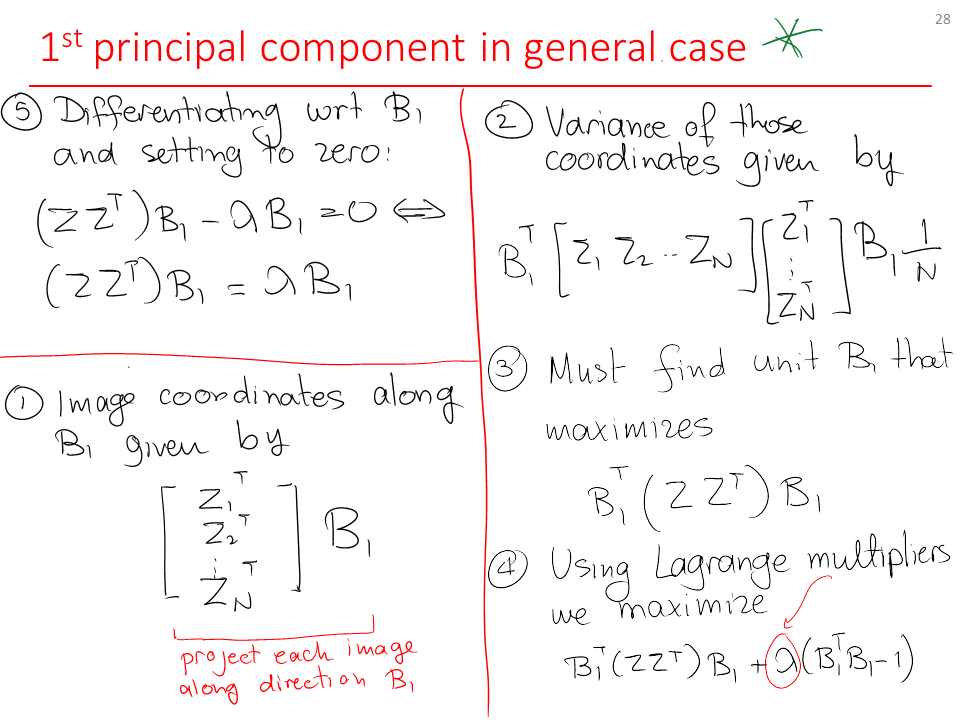 28
1st principal component in general case *
⑤ Differentiating wrt B₁
and setting to zero:
(ZZᵀ)B₁ - λB₁ = 0 ⇔
(ZZᵀ)B₁ = λB₁
① Image coordinates along
B₁ given by
[ Z₁ᵀ
Z₂ᵀ
⋮
Z_Nᵀ ] B₁
project each image
along direction B₁
② Variance of those
coordinates given by
B₁ᵀ [Z₁ Z₂ ·· Z_N] [Z₁ᵀ ⋮ Z_Nᵀ] B₁ 1/N
③ Must find unit B₁ that
maximizes
B₁ᵀ (ZZᵀ) B₁
④ Using Lagrange multipliers
we maximize
B₁ᵀ(ZZᵀ)B₁ + λ(B₁ᵀB₁-1)